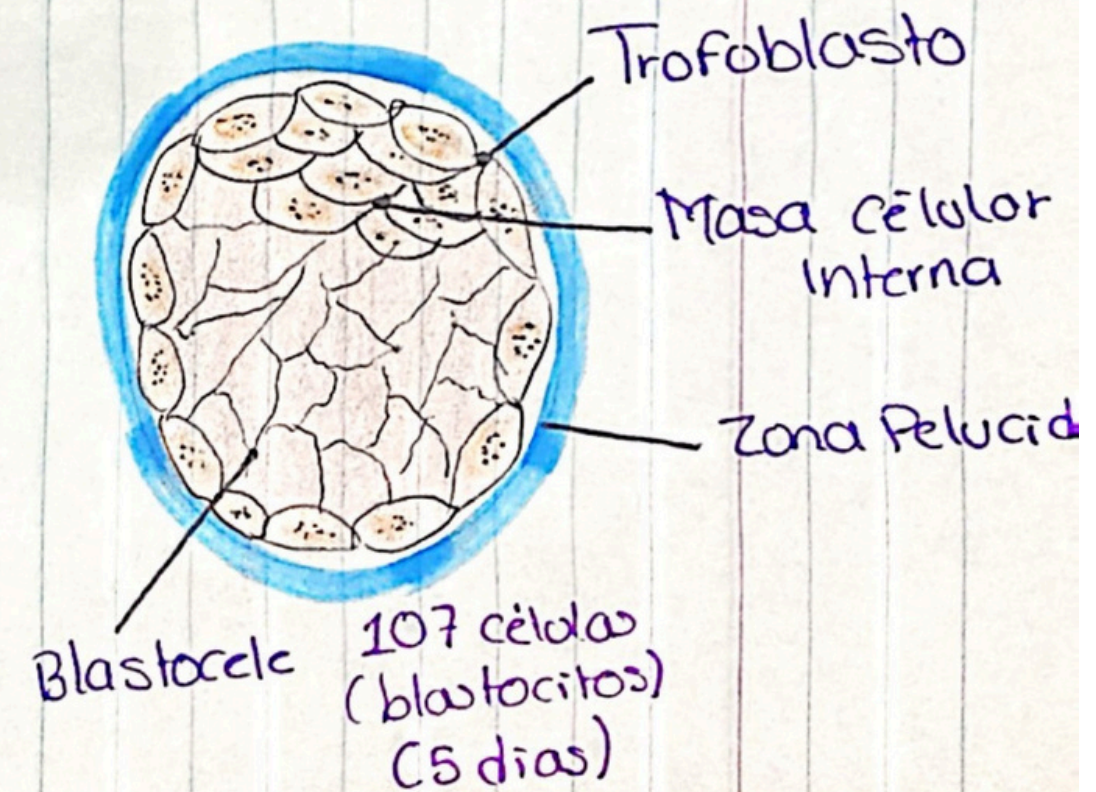 Trofoblasto
Masa Célular
Interna
Zona Pelucid
Blastocele
107 células
(blastocitos)
(5 dias)